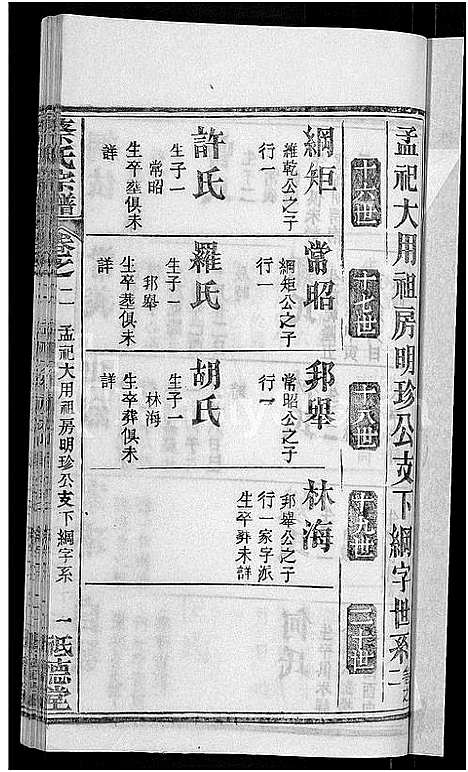 孟祀大用祖房明珍公支下綱字世系卷之二
十六世
十七世
十八世
十九世
二十世
綱矩
維乾公之子
行一
許氏
生子一
常昭
生卒塟俱未
詳
常昭
綱矩公之子
行一
羅氏
生子一
邦舉
生卒塟俱未
詳
邦舉
常昭公之子
行一
胡氏
生子一
林海
生卒葬俱未
詳
林海
邦舉公之子
行一家字派
生卒葬未詳
氏宗譜
卷之二
孟祀大用祖房明珍公支下綱字系
一
祗德堂